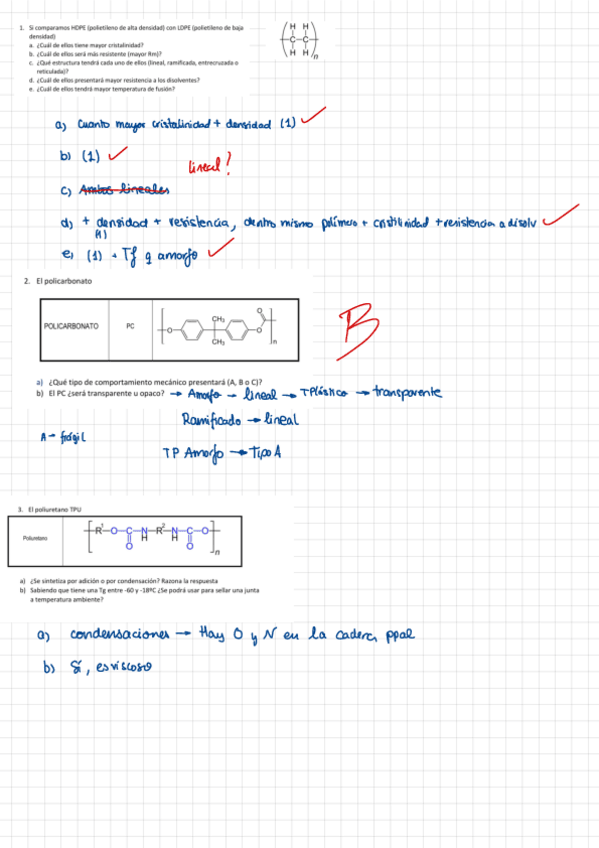 1. Si comparamos HDPE (polietileno de alta densidad) con LDPE (polietileno de baja
densidad)
a. ¿Cuál de ellos tiene mayor cristalinidad?
b. ¿Cuál de ellos será más resistente (mayor Rm)?
c. ¿Qué estructura tendrá cada uno de ellos (lineal, ramificada, entrecruzada o
reticulada)?
d. ¿Cuál de ellos presentará mayor resistencia a los disolventes?
e. ¿Cuál de ellos tendrá mayor temperatura de fusión?
H H
C-C
H H n
a) Cuanto mayor cristalinidad + densidad (1)
b) (1)
lineal?
c) Ambos lineales
d) + densidad + resistencia, dentro mismo polímero + cristilinidad + resistencia a disolv
(1)
e) (1) + Tf q amorfo
2. El policarbonato
POLICARBONATO PC
CH3
CH3
O
O
O
n
B
a) ¿Qué tipo de comportamiento mecánico presentará (A, B o C)?
b) El PC ¿será transparente u opaco? → Amorfo → lineal → TPlástico → transparente
Ramificado → lineal
A → frágil
TP Amorfo → Tipo A
3. El poliuretano TPU
Poliuretano
R1-O-C-N-R2-N-C-O
O H H O n
a) ¿Se sintetiza por adición o por condensación? Razona la respuesta
b) Sabiendo que tiene una Tg entre -60 y -18ºC ¿Se podrá usar para sellar una junta
a temperatura ambiente?
a) condensaciones → Hay O y N en la cadena ppal
b) Sí, es viscoso